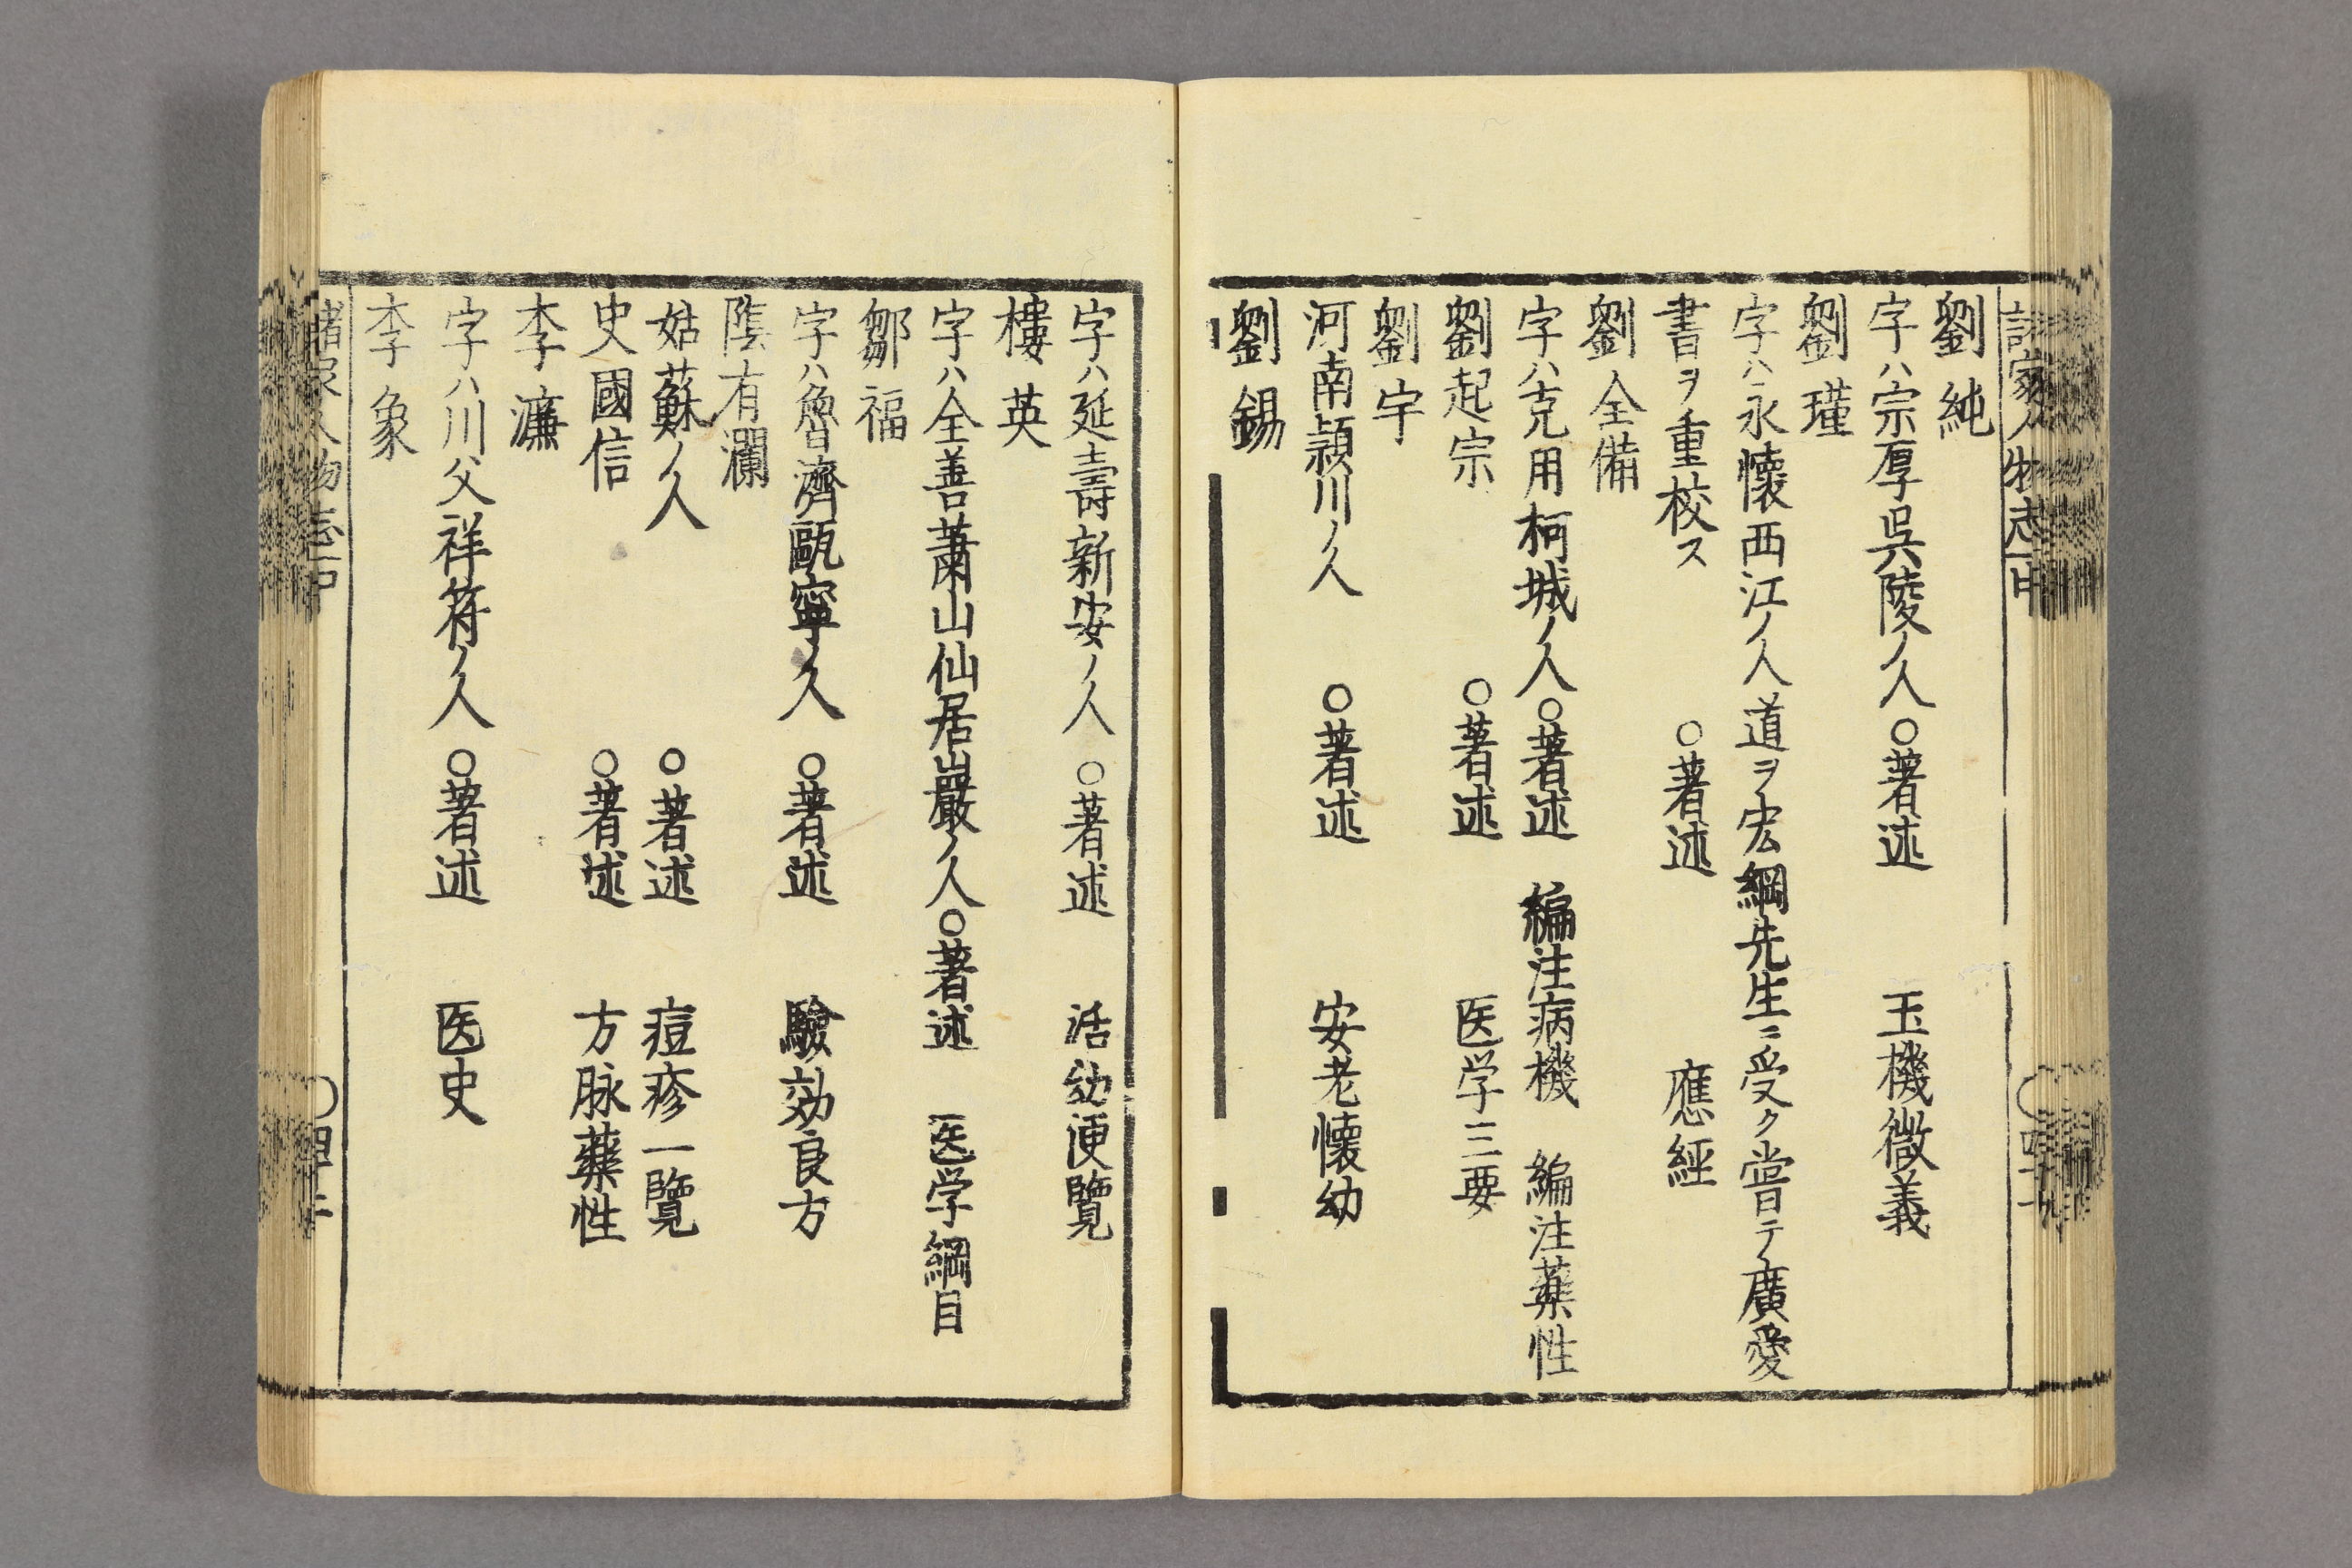 劉純
字ハ宗厚呉陵ノ人○著述 玉機微義
劉瑾
字ハ永懐西江ノ人道ヲ宏綱先生ニ受ク嘗テ廣愛
書ヲ重校ス ○著述 應經
劉全備
字ハ克用柯城ノ人○著述 編注病機 編注藥性
劉起宗 ○著述 医学三要
劉宇
河南頴川ノ人 ○著述 安老懐幼
劉錫
字ハ延壽新安ノ人 ○著述 活幼便覽
樓英
字ハ全善蕭山仙居巖ノ人○著述 医学綱目
鄒福
字ハ魯濟甌寧ノ人 ○著述 驗効良方
隂有瀾
姑蘇ノ人 ○著述 痘疹一覽
史國信 ○著述 方脉藥性
李濂
字ハ川父祥符ノ人 ○著述 医史
李象